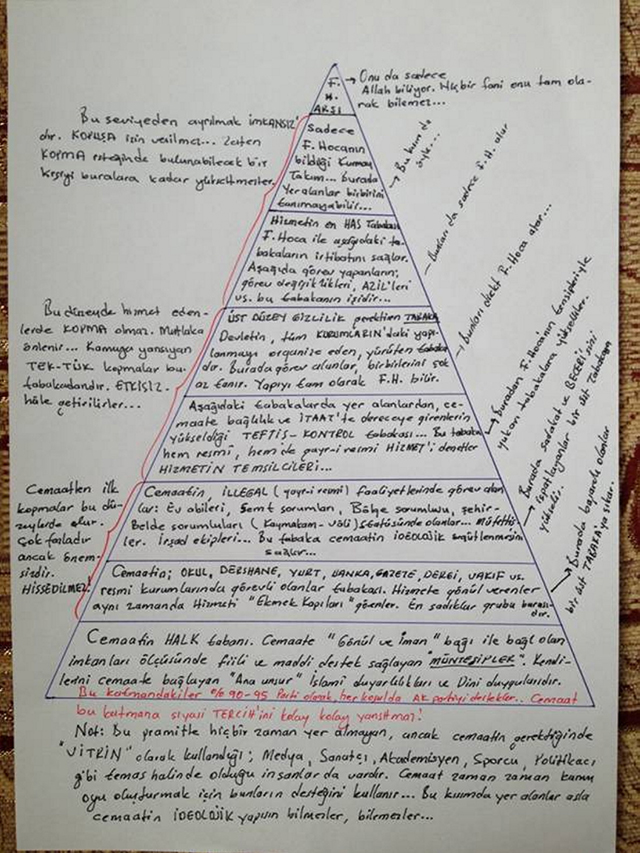 F.
H.
ARŞI
→ Onu da sadece
Allah biliyor. Hiç bir fani onu tam ola-
rak bilemez...
Bu seviyeden ayrılmak imkansız
dır. KOPUŞA izin verilmez... Zaten
KOPMA isteğinde bulunabilecek bir
kişiyi buralara kadar yükseltmezler.
Sadece
F. Hocanın
bildiği Kurmay
Takım... burada
Yer alanlar birbirini
tanımayabilir...
→ Bu kısım da
öyle...
Hizmetin en HAS Tabakası
F. Hoca ile aşağıdaki ta-
bakaların irtibatını sağlar.
Aşağıda görev yapanların;
görev değişiklikleri, AZİL'leri
vs. bu tabakanın işidir...
- Bunları da sadece F. H. atar
Bu düzeyde hizmet eden-
lerde KOPMA olmaz. Mutlaka
önlenir... Kamuya yansıyan
TEK-TÜK kopmalar bu
tabakadandır. ETKİSİZ
hale getirilirler...
ÜST DÜZEY GİZLİLİK gerektiren TABAKA
Devletin, tüm KURUMLARIN'daki yapı-
lanmayı organize eden, yürüten tabaka
dır. Burada görev alanlar, birbirlerini çok
az tanır. Yapıyı tam olarak F.H. bilir.
- Bunları direkt F. Hoca atar...
Aşağıdaki tabakalarda yer alanlardan, ce-
maate bağlılık ve İTAAT'te dereceye girenlerin
yükseldiği TEFTİŞ-KONTROL tabakası... Bu tabaka
hem resmi, hem de gayr-i resmi HİZMET'i denetler
HİZMETİN TEMSİLCİLERİ...
→ Buradan F. Hocanın tensipleriyle
yukarı tabakalara yükselirler.
Cemaatten ilk
kopmalar bu dü-
zeylerde olur.
Çok fazladır
ancak önem-
sizdir.
HİSSEDİLMEZ!
Cemaatin, İLLEGAL (gayr-i resmi) faaliyetlerinde görev alan
lar: Ev abileri, Semt sorumluları, Bölge sorumlusu, şehir-
Belde sorumluları (Kaymakam-vali) statüsünde olanlar... Müfettiş-
ler. İrşad ekipleri... Bu tabaka cemaatin İDEOLOJİK örgütlenmesini
sağlar...
→ Burada sadakat ve BECERİ'sini
ispatlayanlar bir üst Tabakaya
yükselir.
Cemaatin; OKUL, DERSHANE, YURT, BANKA, GAZETE, DERGİ, VAKIF vs.
resmi kurumlarında görevli olanlar tabakası. Hizmete gönül verenler
aynı zamanda Hizmeti "Ekmek Kapıları" görenler. En sadıklar grubu burası-
dır.
→ Burada başarılı olanlar
bir üst TABAKA'ya çıkar.
Cemaatin HALK tabanı. Cemaate "Gönül ve İman" bağı ile bağlı olan
imkanları ölçüsünde fiili ve maddi destek sağlayan "MÜNTESİPLER". Kendi-
lerini cemaate bağlayan "Ana unsur" İslami duyarlılıkları ve Dini duygularıdır.
Bu katmandakiler % 90-95 Parti olarak, her koşulda AK partiyi destekler.. Cemaat
bu katmana siyasi TERCİH'ini kolay kolay yansıtmaz!
Not: Bu pramitle hiçbir zaman yer almayan, ancak cemaatin gerektiğinde
"VİTRİN" olarak kullandığı; Medya, Sanatçı, Akademisyen, Sporcu, Politikacı
gibi temas halinde olduğu insanlar da vardır. Cemaat zaman zaman kamu
oyu oluşturmak için bunların desteğini kullanır... Bu kısımda yer alanlar asla
cemaatin İDEOLOJİK yapısın bilmezler, bilemezler...